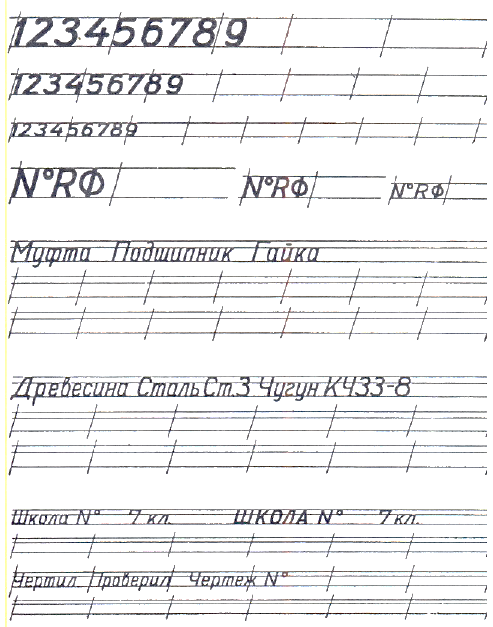 123456789
123456789
123456789
N°RФ N°RФ N°RФ
Муфта Подшипник Гайка
Древесина Сталь Ст.3 Чугун КЧ33-8
Школа N° 7 кл. ШКОЛА N° 7 кл.
Чертил Проверил Чертеж N°